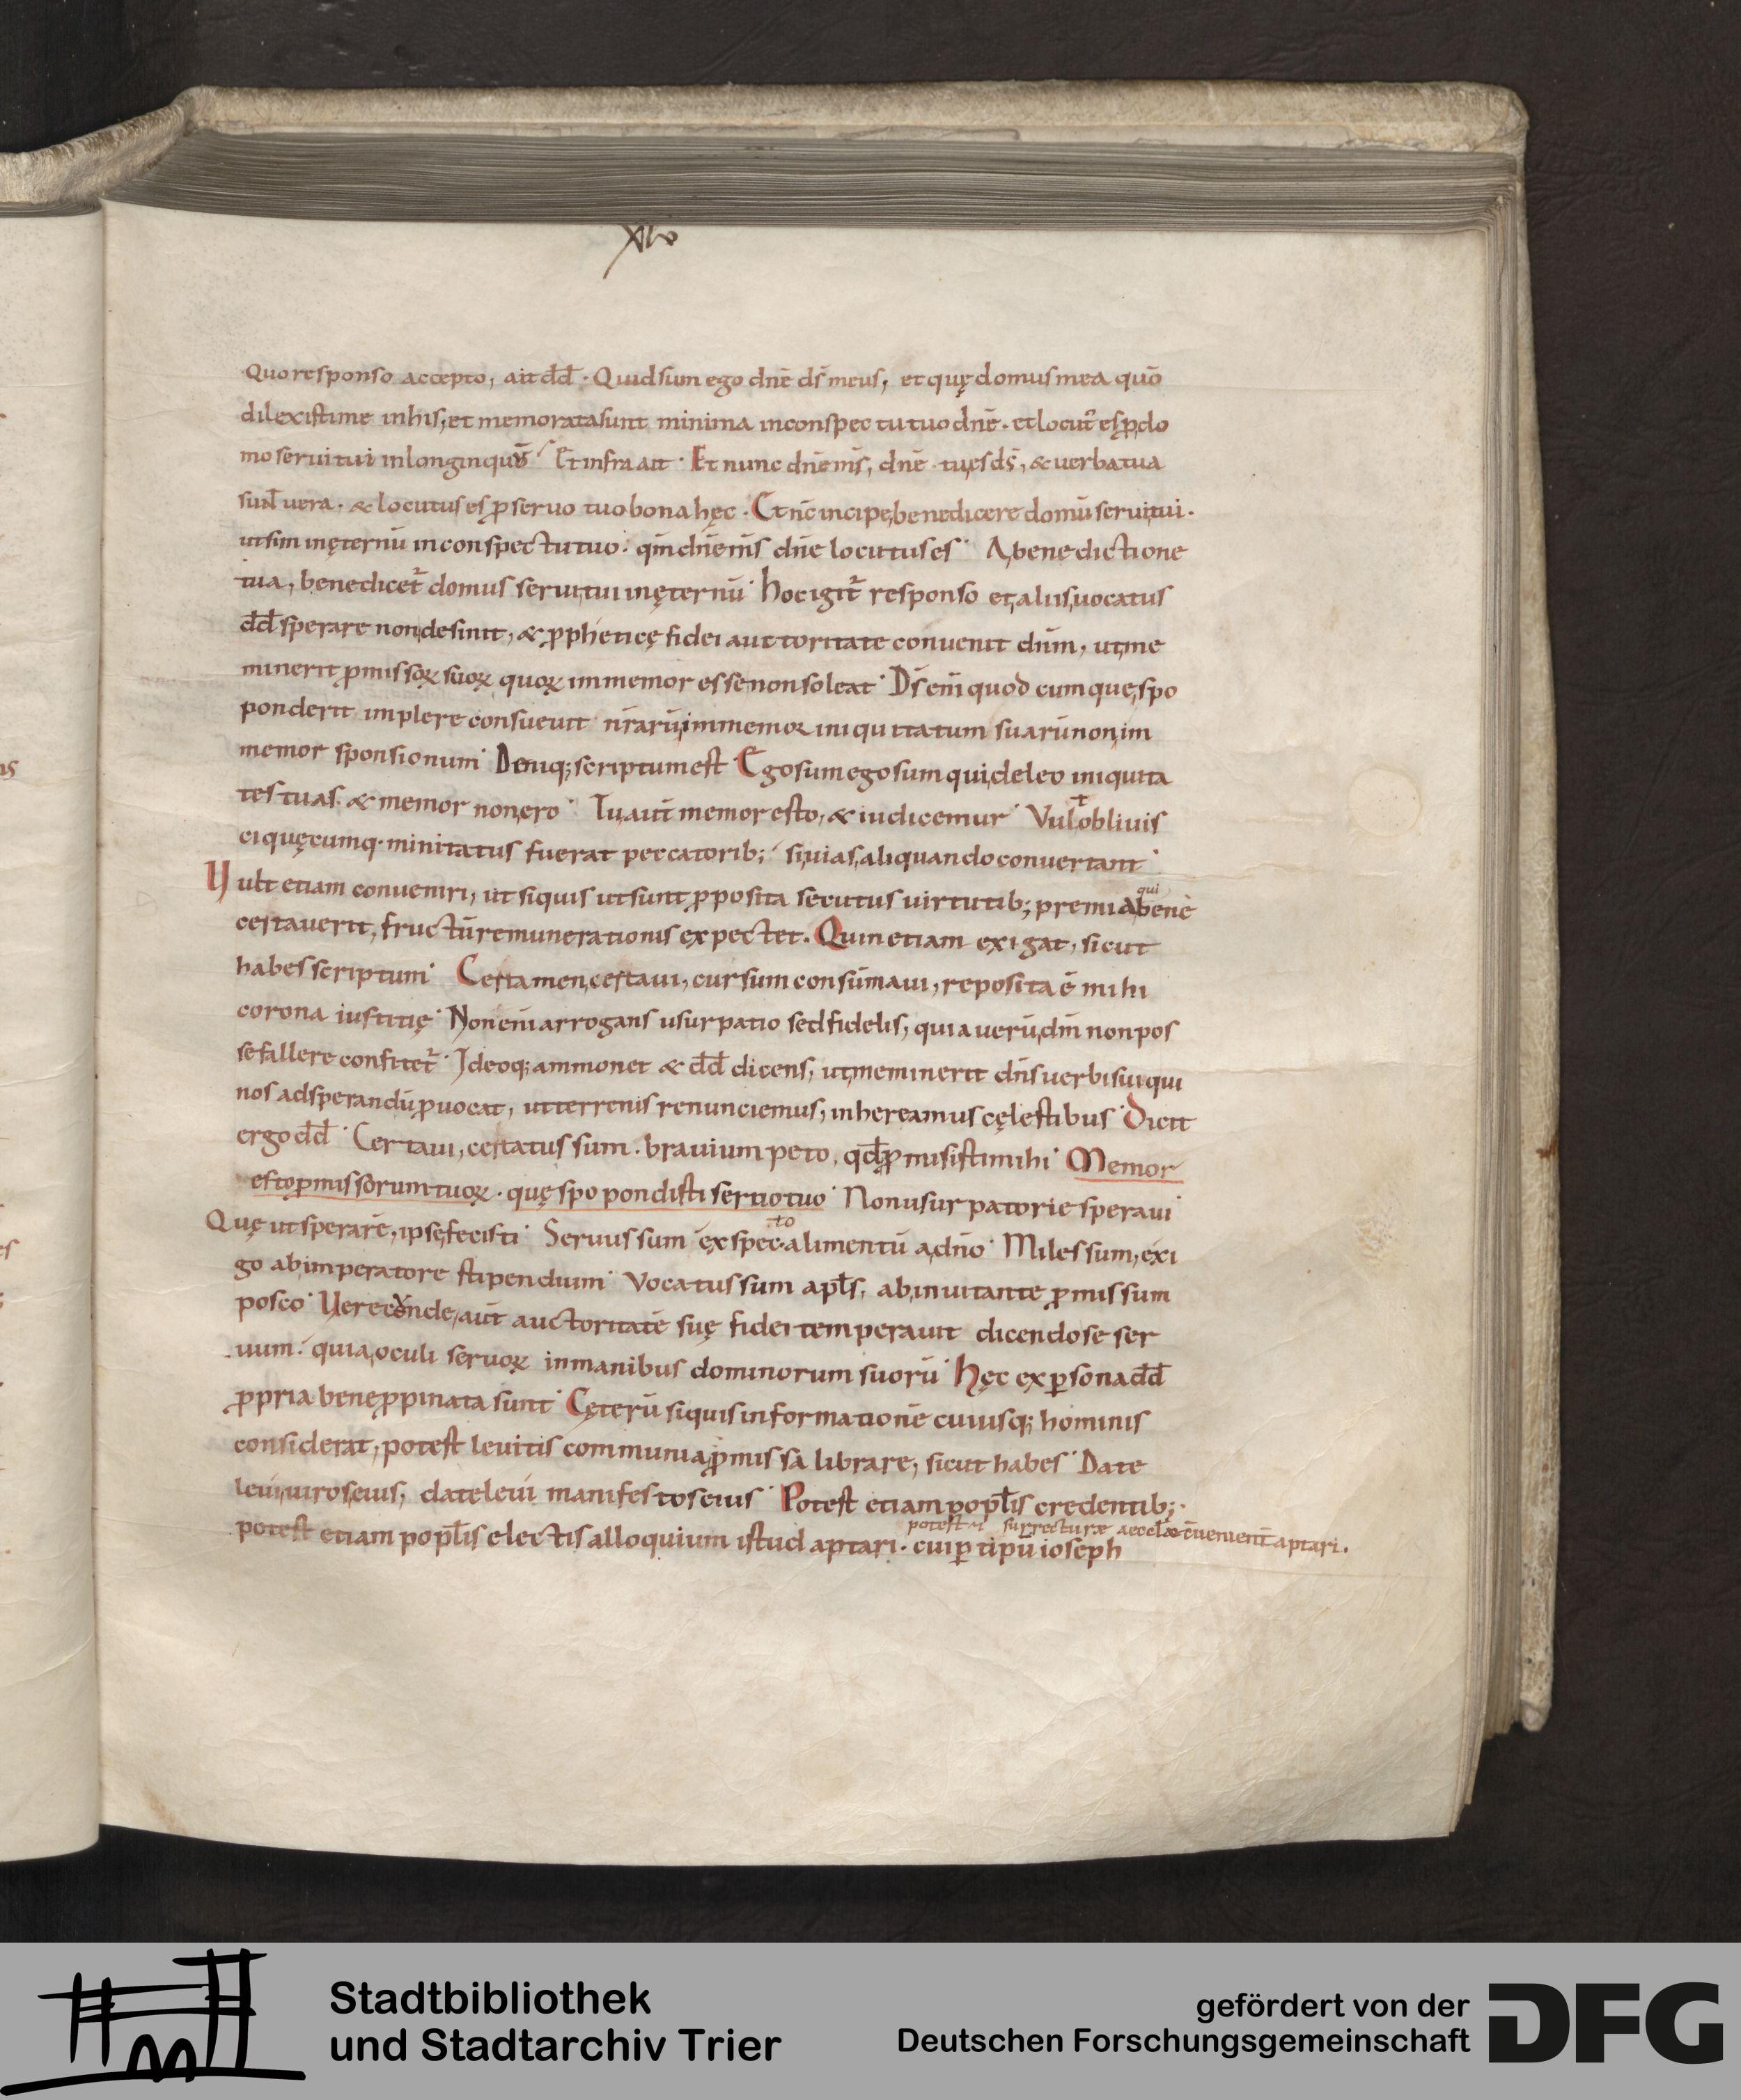 xlv
Quo responso accepto, ait dd̄. Quid sum ego dnē ds̄ meus, et quę domus mea quō
dilexisti me in his, et memorata sunt minima in conspectu tuo dnē. et locut᷑ es p̱ do
mo servi tui in longinquū Et infra ait. Et nunc dnē ms̄, dnē tu es ds̄, & verba tua
sunt̄ vera. & locutus es ꝓ servo tuo bona hęc. Et nc̄ incipe benedicere domū servi tui.
ut sim in ęternū in conspectu tuo. qm̄ dnē ms̄ dnē locutus es. A benedictione
tua, benedicet᷑ domus servi tui in ęternū. hoc igit᷑ responso et aliis vocatus
dd̄ sperare non desinit, & ꝓpheticę fidei auctoritate convenit dnm̄, ut me
minerit ꝓmissoꝝ suoꝝ quoꝝ immemor esse non soleat. Ds̄ eni̅ quodcumque spo
ponderit implere consuevit nr̄arū immemor iniquitatum suarū non im
memor sponsionum. Deniq; scriptum est Ego sum ego sum qui deleo iniquita
tes tuas. & memor non ero. Tu aut̄ memor esto, & iudicemur. Vult oblivis
ci quęcumq. minitatus fuerat peccatorib; si vias aliquando convertant.
Vult etiam conveniri, ut siquis ut sunt ꝓposita secutus virtutib; premia qui bene
certaverit, fructū remunerationis expectet. Quin etiam exigat, sicut
habes scriptum. Certamen certavi, cursum consūmavi, reposita ē mihi
corona iustitię. Non eni̅ arrogans usurpatio sed fidelis, quia verū dm̄ non pos
se fallere confitet᷑. Ideoq; ammonet & dd̄ dicens, ut meminerit dns̄ verbi sui qui
nos ad sperandū ꝓvocat, ut terrenis renunciemus, inhereamus cęlestibus. Dicit
ergo dd̄. Certavi, certatus sum. bravium peto, qd̄ ꝓmisisti mihi. Memor
esto ꝓmissorum tuoꝝ. quę spopondisti servo tuo. Non usurpatorie speravi.
Quę ut sperarē, ipse fecisti. Servus sum expecto alimentū a dnō. Miles sum, exi
go ab imperatore stipendium. Vocatus sum apls̄, ab invitante ꝓmissum
posco. Verecunde aut̄ auctoritatē suę fidei temperavit dicendo se ser
vum. quia oculi servoꝝ in manibus dominorum suorū. Hęc ex p̱sona dd̄
ꝓpria bene ꝓpinata sunt. Cęterū siquis informationē cuiusq; hominis
considerat, potest levitis communia ꝓmissa librare, sicut habes. Date
levi viros eius, date levi manifestos eius. Potest etiam popl̄is credentib;.
potest surrecturæ aeccl̄æ evenient̄ aptari.
potest etiam popl̄is electis alloquium istud aptari. cui p̱ tipū ioseph
Stadtbibliothek
und Stadtarchiv Trier
gefördert von der
Deutschen Forschungsgemeinschaft
DFG